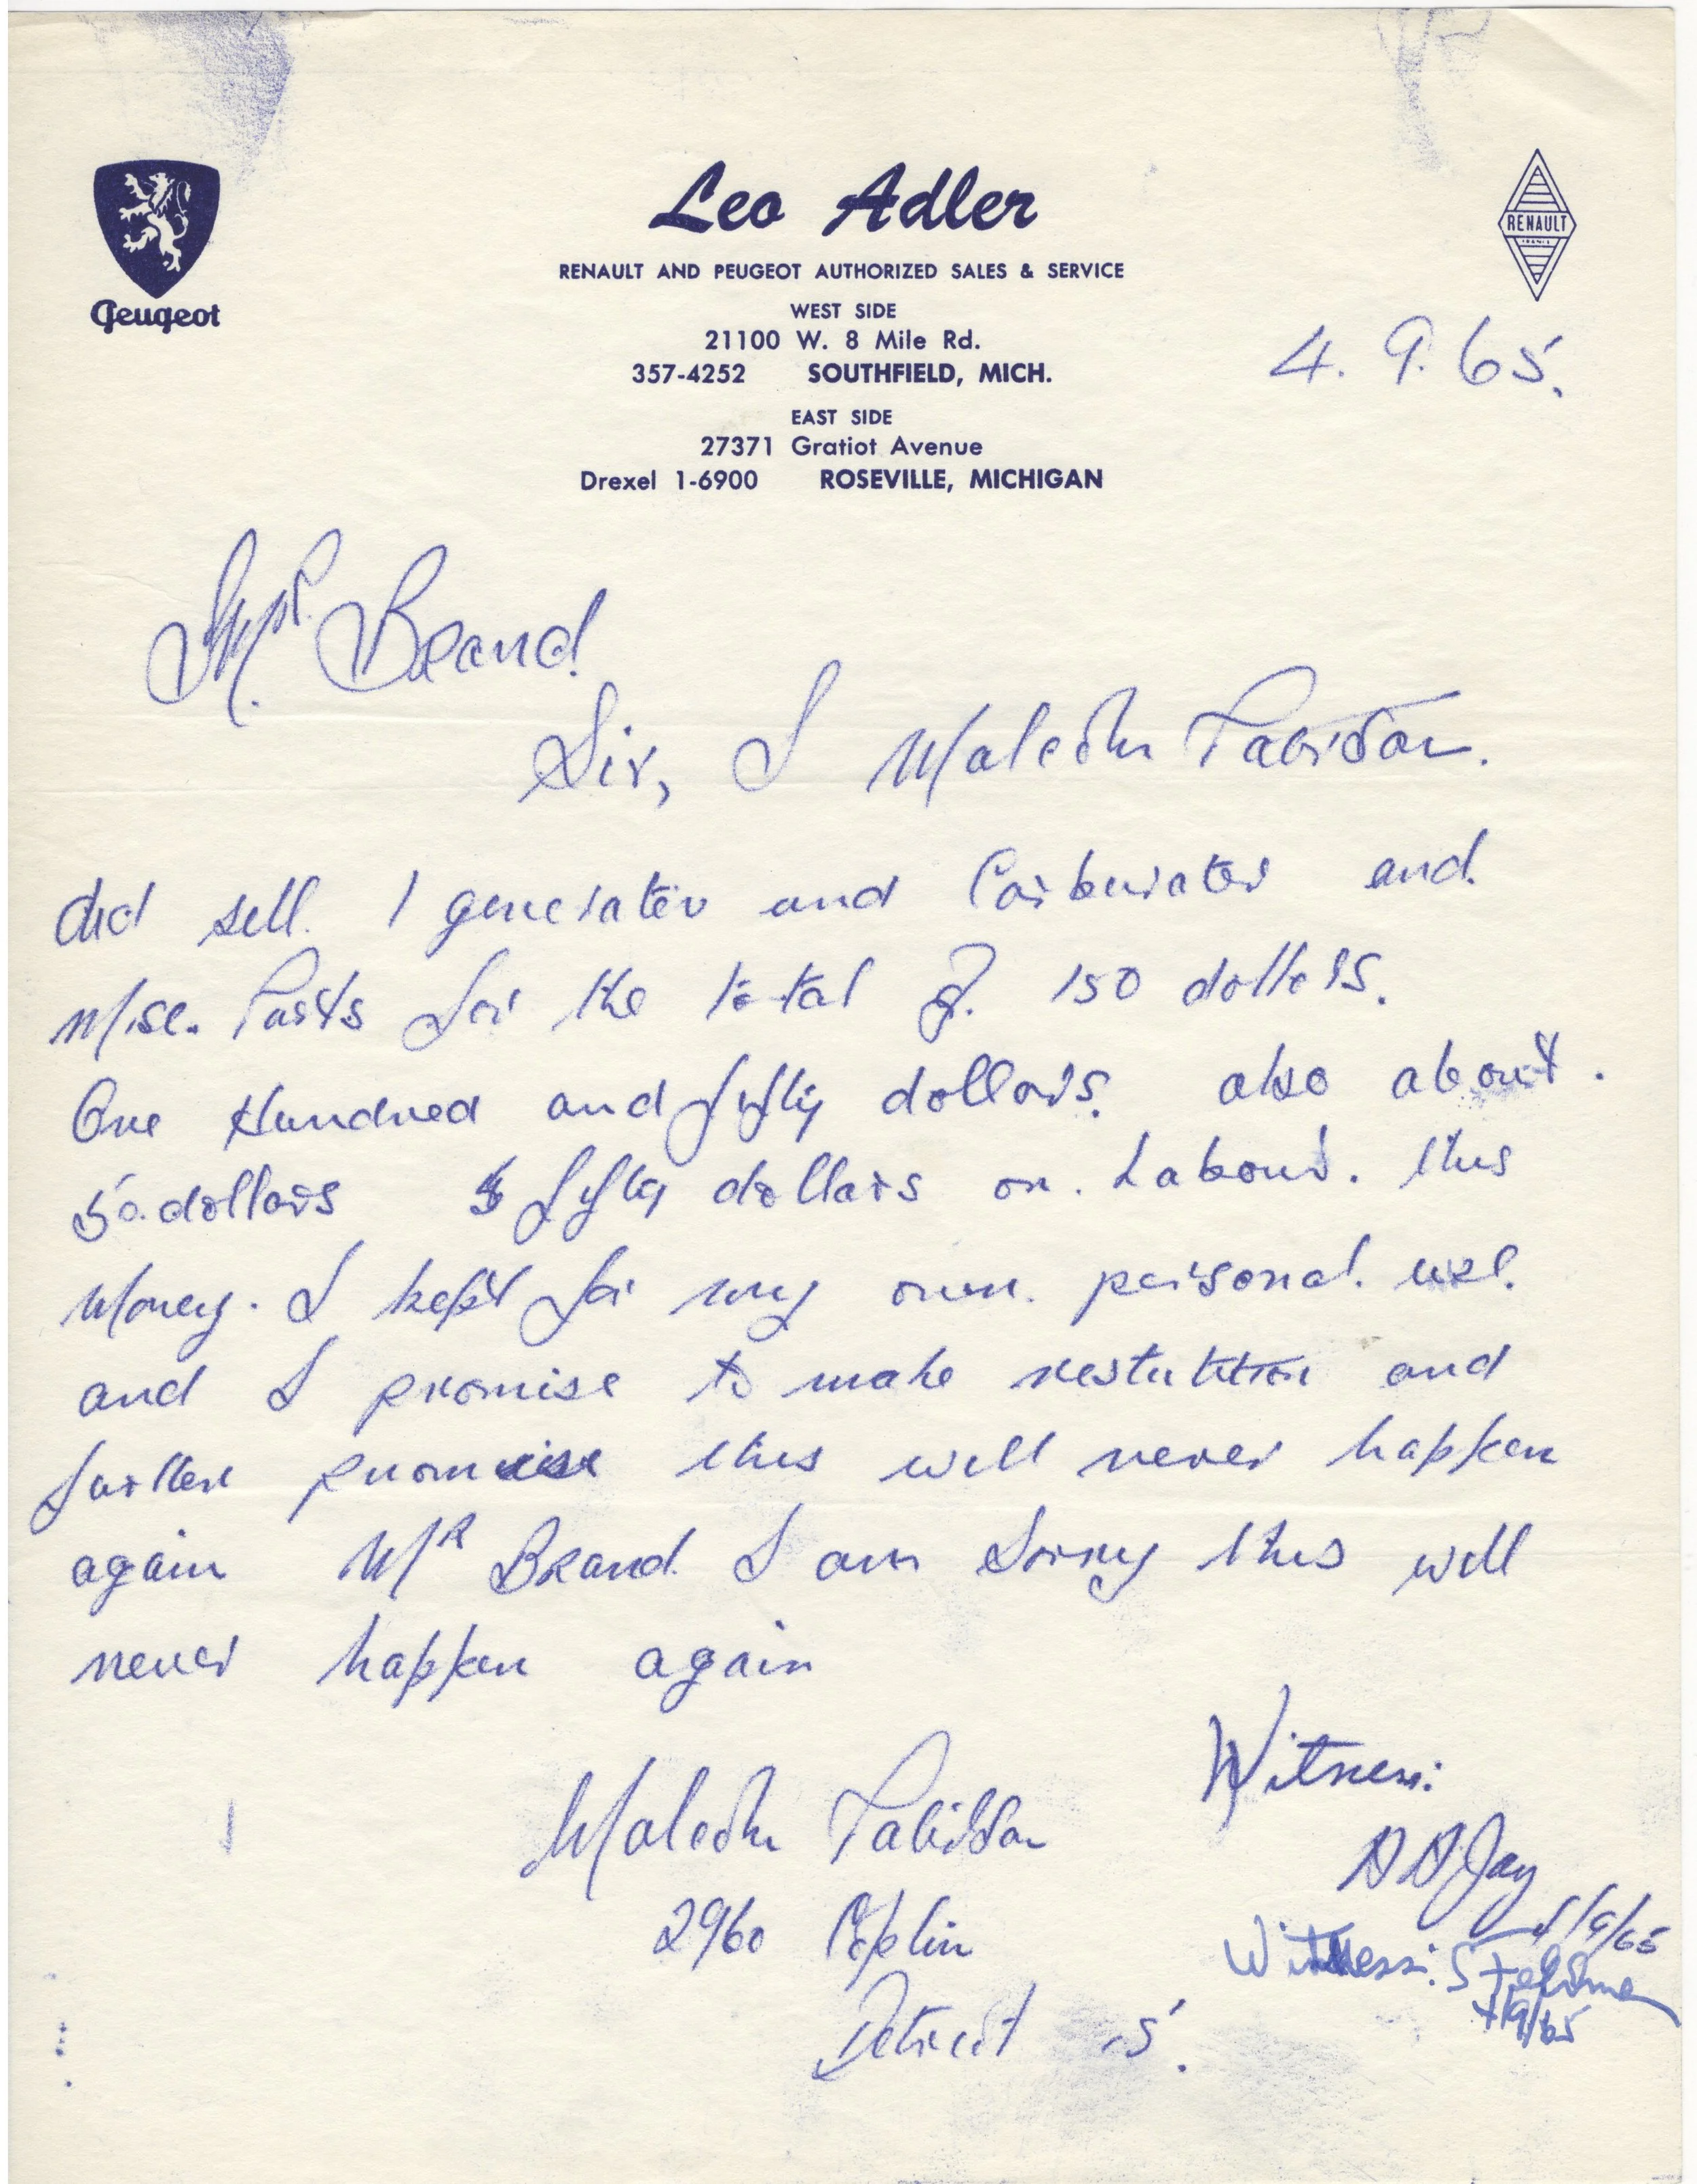 Peugeot
Leo Adler
RENAULT
RENAULT AND PEUGEOT AUTHORIZED SALES & SERVICE
WEST SIDE
21100 W. 8 Mile Rd.
357-4252 SOUTHFIELD, MICH.
EAST SIDE
27371 Gratiot Avenue
Drexel 1-6900 ROSEVILLE, MICHIGAN
4. 9. 65.
Mr. Brand.
Sir, I Malcolm
did sell. 1 generator and Carburator and.
Misc. Parts for the total of. 150 dollers.
One Hundred and fifty dollars. also about.
50. dollars $ fifty dollars on. Labour. this
Money. I kept for my own. personal. use.
and I promise to make restutition and
further promise this will never happen
again Mr Brand. I am Sorry this will
never happen again
Malcolm
2960 Coplin
Detroit 15.
Witness:
Jay
4/9/65
Witness:
4/9/65